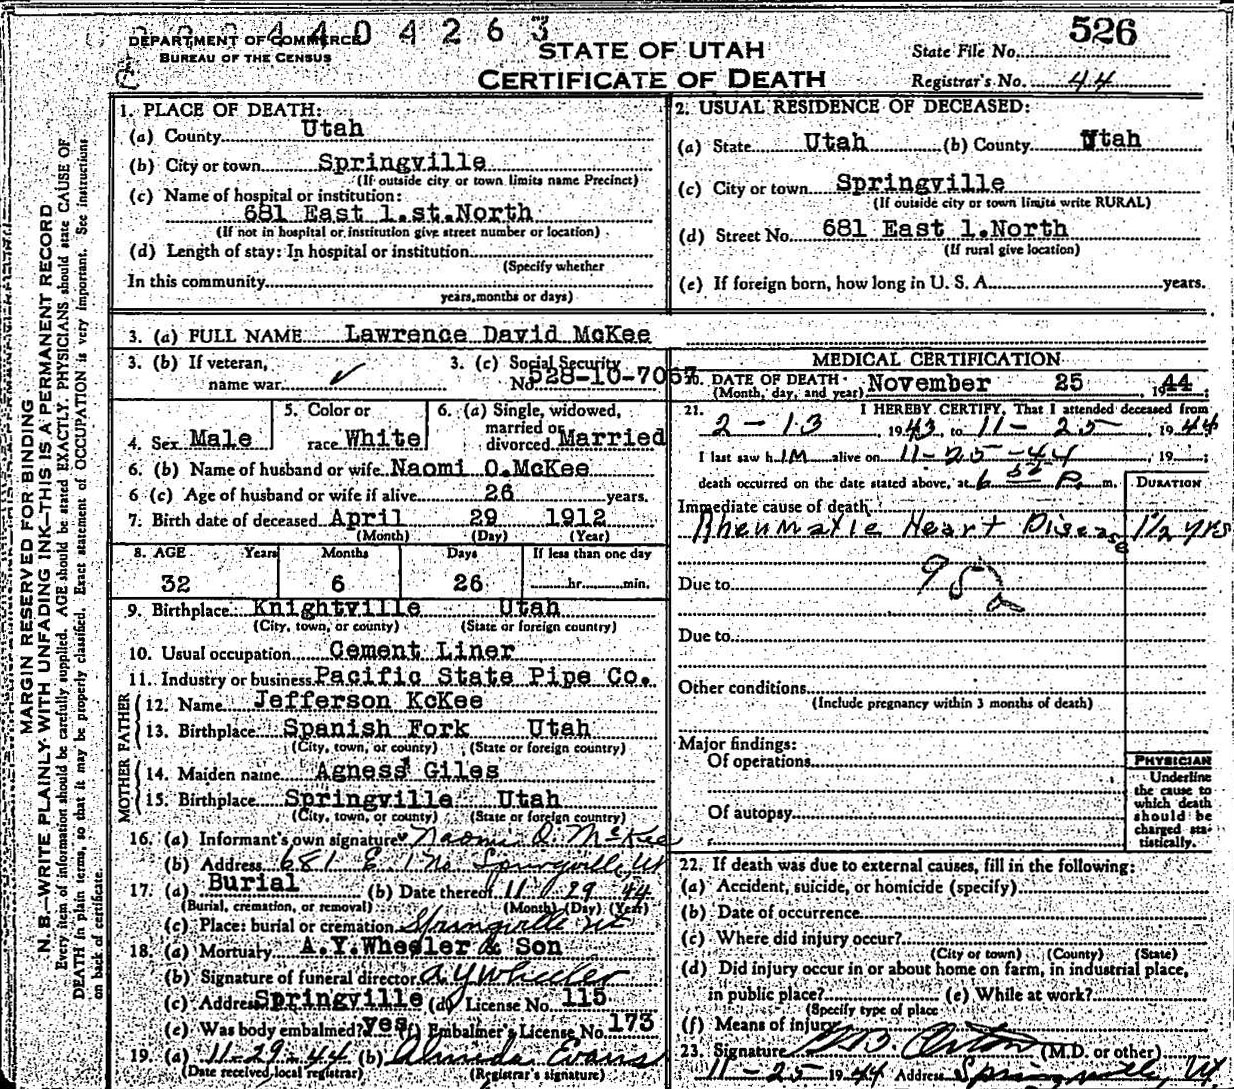 2 3 4 4 0 4 2 6 3
DEPARTMENT OF COMMERCE
BUREAU OF THE CENSUS
STATE OF UTAH
CERTIFICATE OF DEATH
State File No. 526
Registrar's No. 44
MARGIN RESERVED FOR BINDING
N. B.—WRITE PLAINLY WITH UNFADING INK—THIS IS A PERMANENT RECORD
Every item of information should be carefully supplied. AGE should be stated EXACTLY. PHYSICIANS should state CAUSE OF
DEATH in plain terms, so that it may be properly classified. Exact statement of OCCUPATION is very important. See instructions
on back of certificate.
1. PLACE OF DEATH:
(a) County Utah
(b) City or town Springville
(If outside city or town limits name Precinct)
(c) Name of hospital or institution:
681 East 1.st.North
(If not in hospital or institution give street number or location)
(d) Length of stay: In hospital or institution
(Specify whether
In this community
years, months or days)
2. USUAL RESIDENCE OF DECEASED:
(a) State Utah (b) County Utah
(c) City or town Springville
(If outside city or town limits write RURAL)
(d) Street No. 681 East 1.North
(If rural give location)
(e) If foreign born, how long in U. S. A. years.
3. (a) FULL NAME Lawrence David McKee
3. (b) If veteran,
name war ✓
3. (c) Social Security
No. 528-10-7057
4. Sex Male
5. Color or
race White
6. (a) Single, widowed,
married or
divorced Married
6. (b) Name of husband or wife Naomi O.McKee
6 (c) Age of husband or wife if alive 26 years.
7. Birth date of deceased April 29 1912
(Month) (Day) (Year)
8. AGE Years Months Days If less than one day
32 6 26 hr. min.
9. Birthplace Knightville Utah
(City, town, or county) (State or foreign country)
10. Usual occupation Cement Liner
11. Industry or business Pacific State Pipe Co.
FATHER
12. Name Jefferson KcKee
13. Birthplace Spanish Fork Utah
(City, town, or county) (State or foreign country)
MOTHER
14. Maiden name Agness Giles
15. Birthplace Springville Utah
(City, town, or county) (State or foreign country)
16. (a) Informant's own signature Naomi O. McKee
(b) Address 681 E. 1 No Springville, Ut
17. (a) Burial (b) Date thereof 11 29 44
(Burial, cremation, or removal) (Month) (Day) (Year)
(c) Place: burial or cremation Springville Ut
18. (a) Mortuary A.Y.Wheeler & Son
(b) Signature of funeral director A Y Wheeler
(c) Address Springville (d) License No. 115
(e) Was body embalmed? yes (f) Embalmer's License No. 173
19. (a) 11-29-44 (b) Almida Evans
(Date received local registrar) (Registrar's signature)
MEDICAL CERTIFICATION
20. DATE OF DEATH November 25, 1944;
(Month, day, and year)
21. I HEREBY CERTIFY, That I attended deceased from
2-13, 1943, to 11-25, 1944
I last saw h im alive on 11-25-44, 19 ;
death occurred on the date stated above, at 6 50 P. m.
DURATION
Immediate cause of death
Rheumatic Heart Disease 1½ yrs
Due to
Due to
Other conditions
(Include pregnancy within 3 months of death)
Major findings:
Of operations
Of autopsy
PHYSICIAN
Underline
the cause to
which death
should be
charged sta-
tistically.
22. If death was due to external causes, fill in the following:
(a) Accident, suicide, or homicide (specify)
(b) Date of occurrence
(c) Where did injury occur?
(City or town) (County) (State)
(d) Did injury occur in or about home on farm, in industrial place,
in public place? (e) While at work?
(Specify type of place
(f) Means of injury
23. Signature (M.D. or other)
11-25 1944 Address Springville Ut